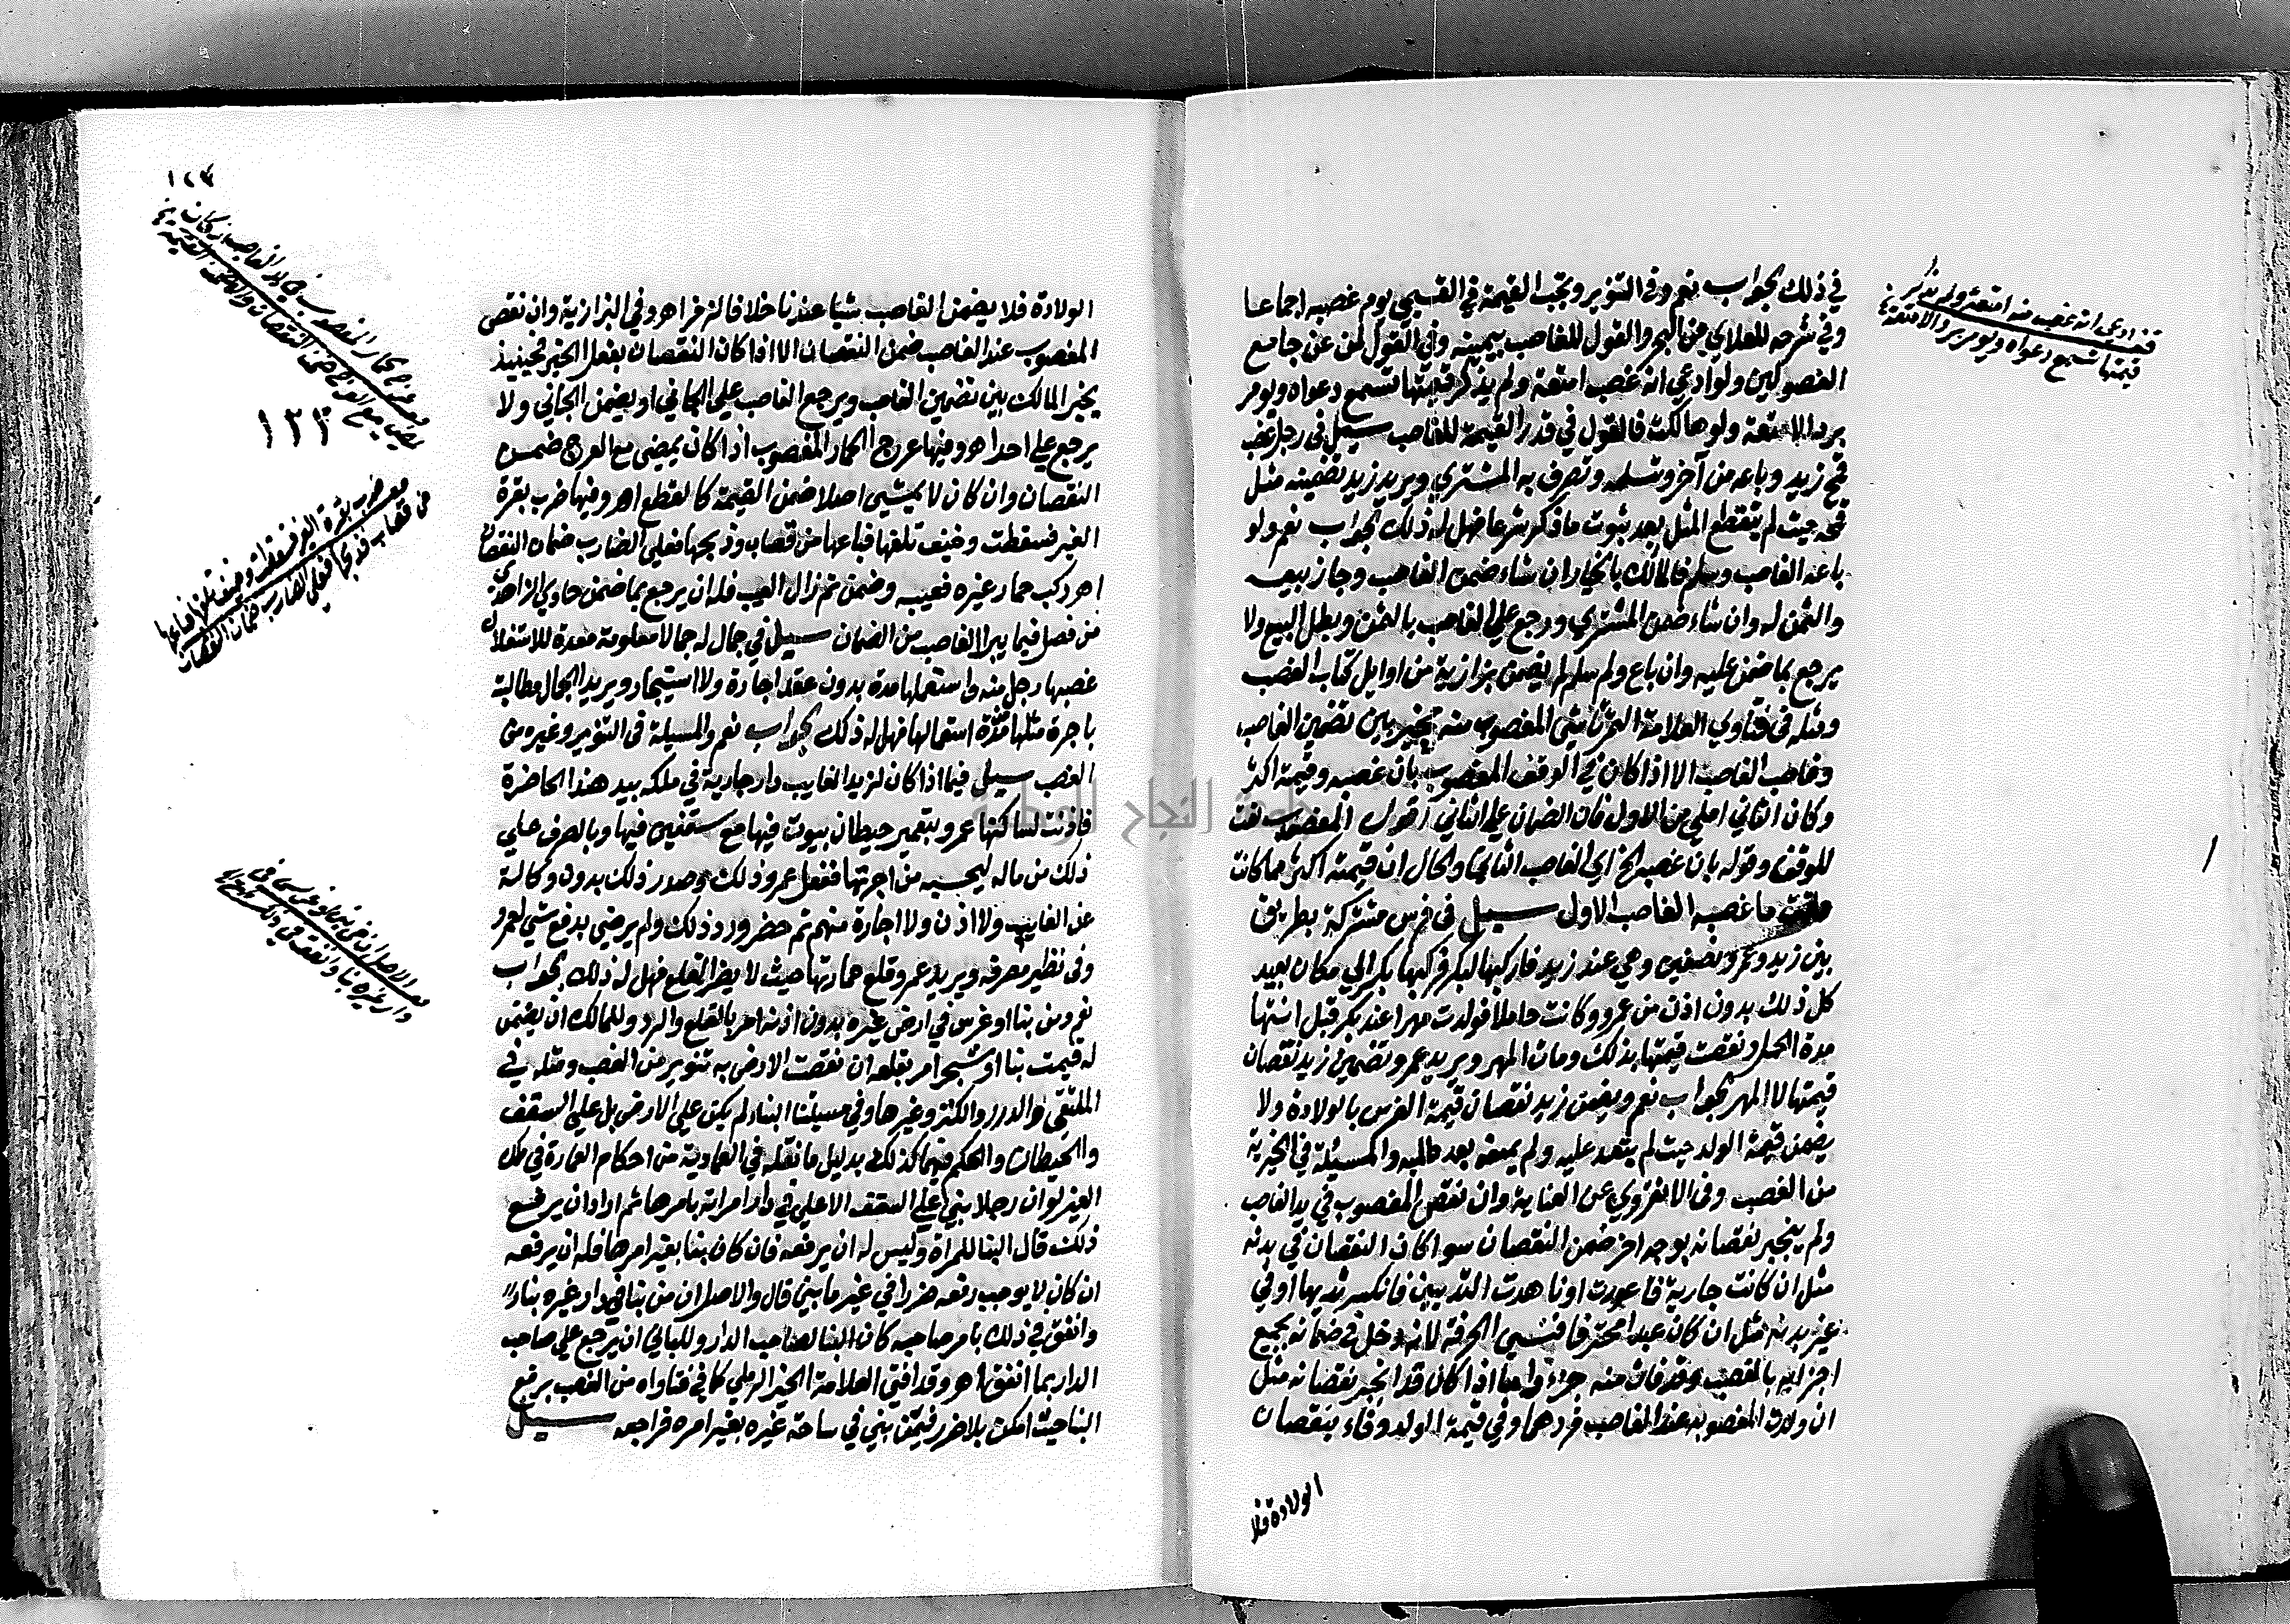 في ذلك الجواب نعم وفي التنوير وتجب القيمة في القيمي يوم غصبه اجماعا
وفي شرحه للعلاي من البحر والقول للغاصب بيمينه وفي القول لمن عن جامع
الفصولين ولو ادعي انه غصب امتعة ولم يذكر قيمتها تسمع دعواه ويومر
برد الامتعة ولو هالكة فالقول في قدر القيمة للغاصب سيل في رجل غصب
قمح زيد وباعه من آخر وسلمه وتصرف به المشتري ويريد زيد تضمينه مثل
قمحه حيث لم ينقطع المثل بعد ثبوت ما ذكر شرعا فهل له ذلك الجواب نعم ولو
باعه الغاصب وسلم فالمالك بالخيار ان شاء ضمن الغاصب وجاز بيعه
والثمن له وان شاء ضمن المشتري ورجع علي الغاصب بالثمن وبطل البيع ولا
يرجع بما ضمن عليه وان باع ولم يسلم لا يضمن بزازية من اوايل كتاب الغصب
ومثله في فتاوي العلامة التمرتاشي المغصوب منه مخير بين تضمين الغاصب
وغاصب الغاصب الا اذا كان في الوقف المغصوب بان غصبه وقيمته اكثر
وكان الثاني املي من الاول فان الضمان علي الثاني اقول المغصوب نعت
للوقف وقوله بان غصبه الخ اي الغاصب الثاني والحال ان قيمته اكثر مما كانت
وقت ما غصبه الغاصب الاول سيل في فرس مشتركة بطريق
بين زيد وعمرو نصفين وهي عند زيد فاركبها لبكر فركبها بكر الي مكان بعيد
كل ذلك بدون اذن من عمرو وكانت حاملا فولدت مهرا عند بكر قبل انتها
مدة الحمل ونقصت قيمتها بذلك ومات المهر ويريد عمرو تضمين زيد نقصان
قيمتها لا المهر الجواب نعم ويضمن زيد نقصان قيمة الفرس بالولادة ولا
يضمن قيمة الولد حيث لم يتعد عليه ولم يمنعه بعد طلبه والمسئلة في الخيرية
من الغصب وفي الانقروي عن العناية وان نقص المغصوب في يد الغاصب
ولم ينجبر نقصانه بوجه اخر ضمن النقصان سوا كان النقصان في بدنه
مثل ان كانت جارية فاعورت او ناهدت الثديين فانكسر ثديها او في
غير بدنه مثل ان كان عبدا محترفا فنسي الحرفة لانه دخل في ضمانه بجميع
اجزايه بالغصب وقد فات منه جزء واما اذا كان قد انجبر نقصانه مثل
ان ولدت المغصوبة عند الغاصب فردها وفي قيمة الولد وفاء بنقصان
الولادة فلا
قف ادعي انه غصب منه امتعة ولم يذكر
قيمتها تسمع دعواه ويومر برد الامتعة
الولادة فلا يضمن الغاصب شيا عندنا خلافا لزفر اهـ وفي البزازية وان نقص
المغصوب عند الغاصب ضمن النقصان الا اذا كان النقصان بفعل الغير فحينيذ
يخير المالك بين تضمين الغاصب ويرجع الغاصب علي الجاني او يضمن الجاني ولا
يرجع علي احد اهـ وفيها عرج الحمار المغصوب اذا كان يمضي مع العرج ضمن
النقصان وان كان لا يمشي اصلا ضمن القيمة كالقطع اهـ وفيها ضرب بقرة
الغير فسقطت وخيف تلفها فباعها من قصاب وذبحها فعلي الضارب ضمان النقصان
اهـ ركب حمار غيره فعيبه وضمن ثم زال العيب فله ان يرجع بما ضمن حاوي الزاهدي
من فصل فيما يبرا الغاصب من الضمان سيل في جمال له جمال معلومة معدة للاستغلال
غصبها رجل منه واستعملها مدة بدون عقد اجارة ولا استيجار ويريد الجمال مطالبته
باجرة مثلها مدة استعمالها فهل له ذلك الجواب نعم والمسيلة في التنوير وغيره من
الغصب سيل فيما اذا كان لزيد الغايب دار جارية في ملكه بيد هند الحاضرة
فاذنت لساكنها عمرو بتعمير حيطان بيوت فيها مع سقفين فيها وبالصرف علي
ذلك من ماله ليحسبه من اجرتها ففعل عمرو ذلك وصدر ذلك بدون وكالة
عن الغايب ولا اذن ولا اجارة منهم ثم حضر ورد ذلك ولم يرضي بدفع شي لعمرو
وفي نظير مصرفه ويريد عمرو قلع عمارتها حيث لا يضر القلع فهل له ذلك الجواب
نعم ومن بنا او غرس في ارض غيره بدون اذنه امر بالقلع والرد وللمالك ان يضمن
له قيمت بنا او شجر امر بقلعه ان نقصت الارض به تنوير من الغصب ومثله في
الملتقي والدرر والكنز وغيرها وفي مسيلتنا البناء لم يكن علي الارض بل علي السقف
والحيطان والحكم فيهما كذلك بدليل ما نقله في العمادية من احكام العمارة في ملك
الغير لو ان رجلا بني علي السقف الاعلي في دار امراته بامرها ثم اراد ان يرفع
ذلك قال البنا للمراة وليس له ان يرفعه فان كان بنا بغير امرها فله ان يرفعه
ان كان لا يوجب رفعه ضررا في غير ما بني قال والاصل ان من بنا في دار غيره بناء
وانفق في ذلك بامر صاحبه كان البنا لصاحب الدار وللباني ان يرجع علي صاحب
الدار بما انفق اهـ وقد افتي العلامة الخير الرملي كما في فتاواه من الغصب برفع
البنا حيث امكن بلا ضرر فيمن بني في ساحة غيره بغير امره فراجعه سيل
١٢٣
عرج الحمار المغصوب في يد الغاصب ان كان
يمضي مع العرج ضمن النقصان والا ضمن القيمة
١٢٣
ضرب بقرة الغير فسقطت وخيف تلفها فباعها
من قصاب فذبحها فعلي الضارب ضمان النقصان
الاصل ان من بنا
دار غيره بنا وانفق في ذلك